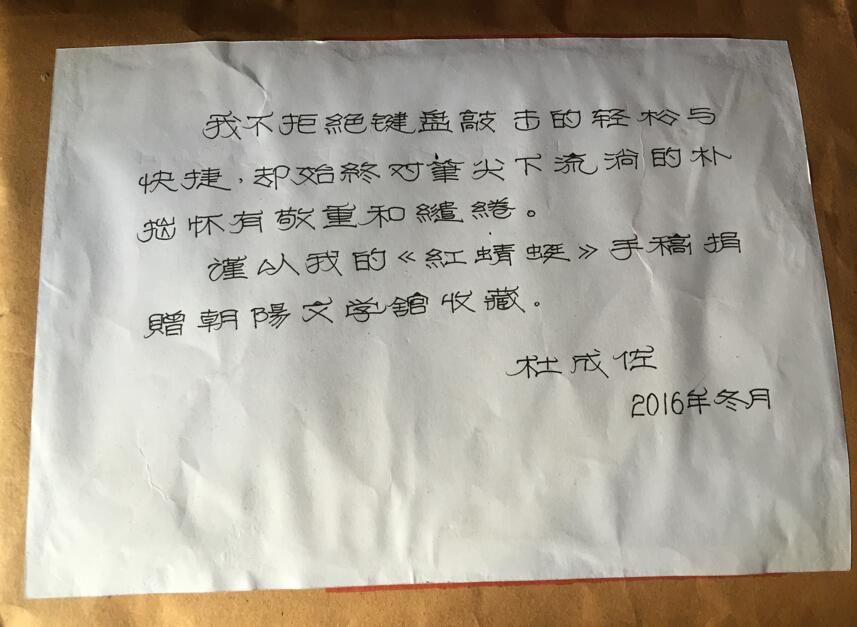 我不拒絕键盘敲击的轻松与
快捷，却始終对筆尖下流淌的朴
拙怀有敬重和繾綣。
谨以我的《紅蜻蜓》手稿捐
贈朝陽文学館收藏。
杜成佐
2016年冬月